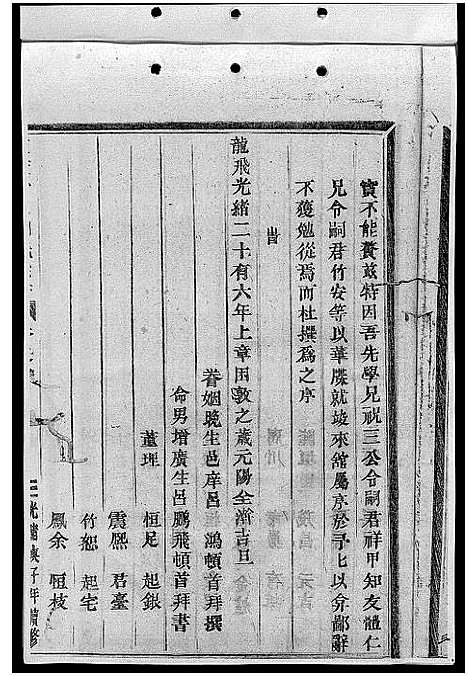 實不能贅茲特因吾先學兄祝三公令嗣君祥甲知友體仁
兄令嗣君竹安等以華牒就竣來舘屬序於予七以弇鄙辭
不獲勉從焉而杜撰為之序
峕
龍飛光緒二十有六年上章困敦之歲元陽全漸吉旦
眷姻晚生邑庠呂鴻頓首拜撰
命男增廣生呂鵬飛頓首拜書
董理
恒足 起銀
震熙 君臺
竹恕 起宅
鳳余 恒枝
光緒庚子年續修